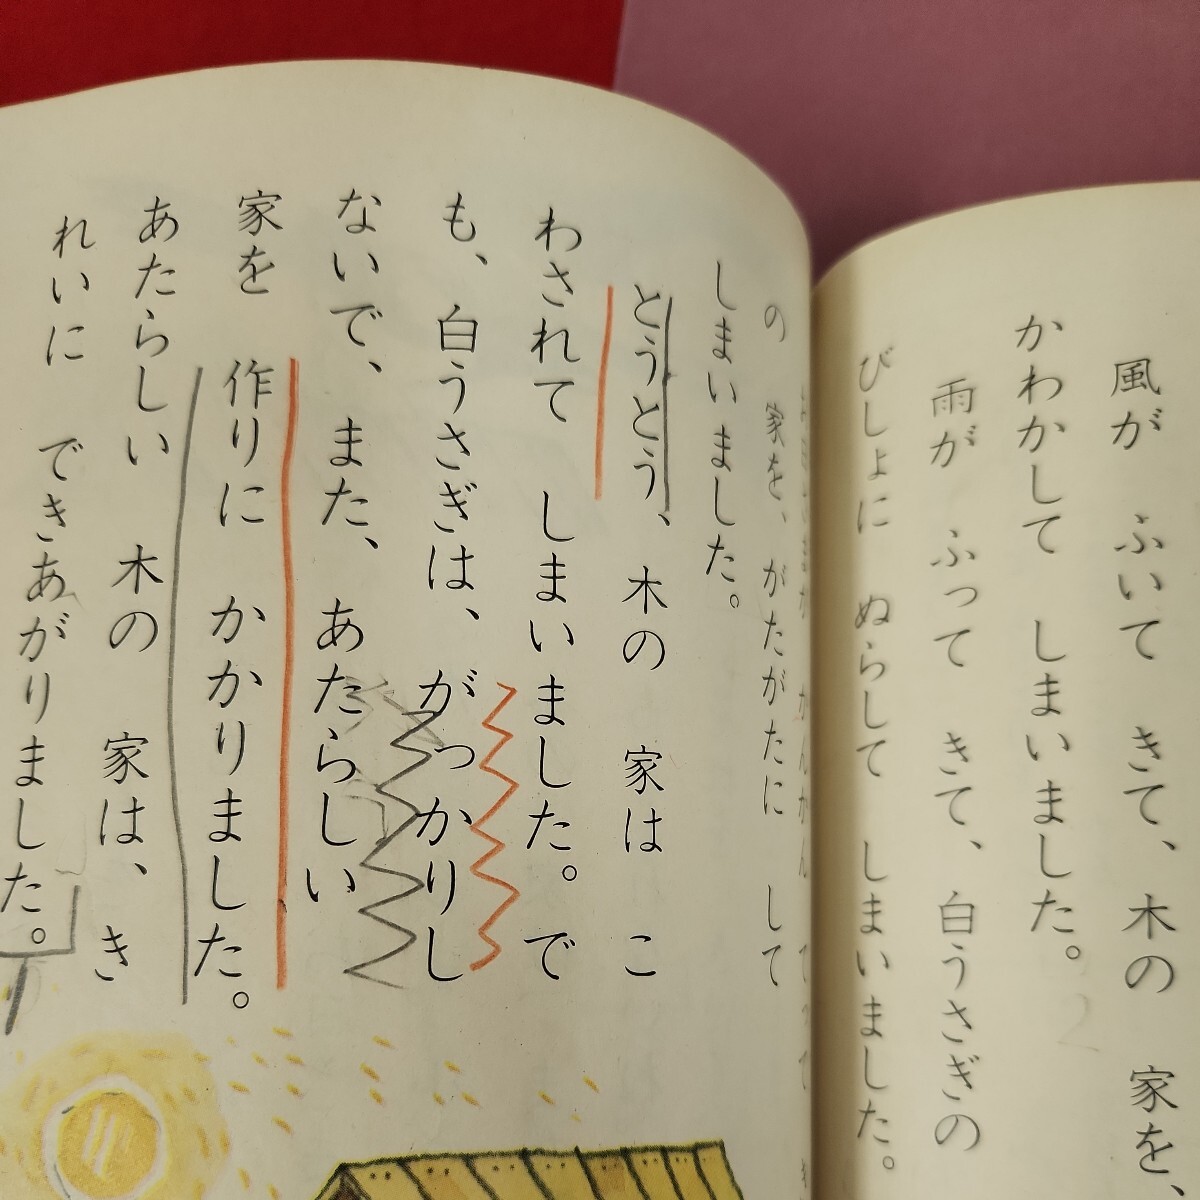 風が ふいて きて、木の 家を、
かわかして しまいました。
雨が ふって きて、白うさぎの
びしょに ぬらして しまいました。
かんかん てって き
の 家を、がたがたに して
しまいました。
とうとう、木の 家は こ
わされて しまいました。で
も、白うさぎは、がっかりし
ないで、また、あたらしい
家を 作りに かかりました。
あたらしい 木の 家は、き
れいに できあがりました。